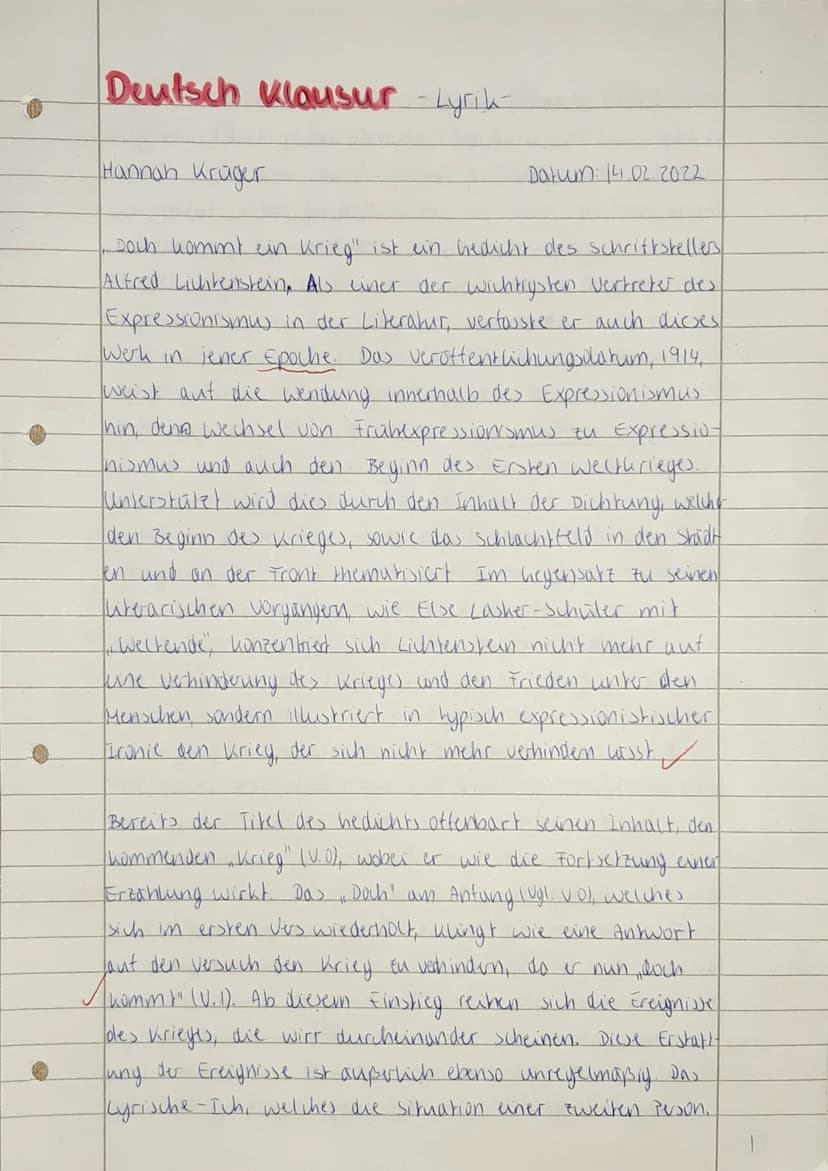 Deutsch Klausur - Lyrik -
Hannah Krüger Datum: 14.02.2022
„Doch kommt ein Krieg" ist ein Gedicht des Schriftstellers
Alfred Lichtenstein. Als einer der wichtigsten Vertreter des
Expressionismus in der Literatur, verfasste er auch dieses
Werk in jener Epoche. Das Veröffentlichungsdatum, 1914,
weist auf die Wendung innerhalb des Expressionismus
hin, denn Wechsel von Frühexpressionismus zu Expressio-
nismus und auch den Beginn des Ersten Weltkrieges.
Unterstützt wird dies durch den Inhalt der Dichtung, welche
den Beginn des Krieges, sowie das Schlachtfeld in den Städt
en und an der Front thematisiert. Im Gegensatz zu seinen
literarischen Vorgängern, wie Else Lasker-Schüler mit
„Weltende", konzentriert sich Lichtenstein nicht mehr auf
eine Verhinderung des Krieges und den Frieden unter den
Menschen, sondern illustriert in typisch expressionistischer
Ironie den Krieg, der sich nicht mehr verhindern lässt.
Bereits der Titel des Gedichts offenbart seinen Inhalt, den
kommenden „Krieg" (V.0), wobei er wie die Fortsetzung einer
Erzählung wirkt. Das „Doch" am Anfang (Vgl. V.0), welches
sich im ersten Vers wiederholt, klingt wie eine Antwort
auf den Versuch den Krieg zu verhindern, da er nun „doch
kommt" (V.1). Ab diesem Einstieg reihen sich die Ereignisse
des Krieges, die wirr durcheinander scheinen. Diese
ung der Ereignisse ist äußerlich ebenso unregelmäßig. Das
Lyrische-Ich, welches die Situation einer zweiten Person,
1